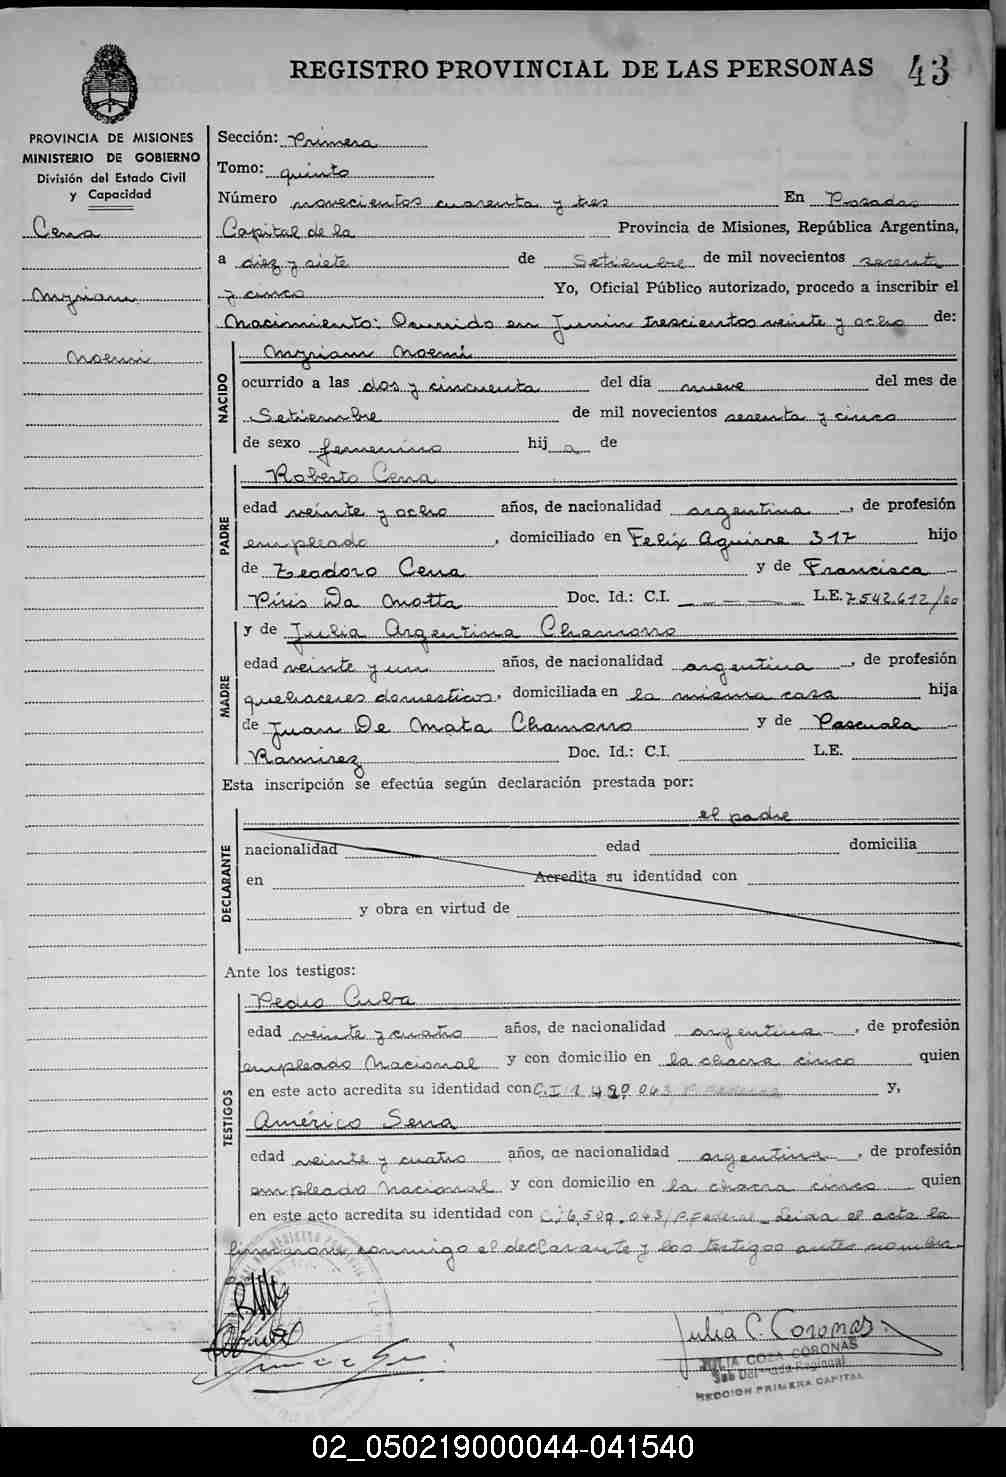 REGISTRO PROVINCIAL DE LAS PERSONAS 43
PROVINCIA DE MISIONES
MINISTERIO DE GOBIERNO
División del Estado Civil
y Capacidad
Cena
Myriam
Noemi
Sección: Primera
Tomo: quinto
Número novecientos cuarenta y tres En Posadas
Capital de la Provincia de Misiones, República Argentina,
a diez y siete de Setiembre de mil novecientos sesenta
y cinco Yo, Oficial Público autorizado, procedo a inscribir el
Nacimiento: Ocurrido en Junin trescientos veinte y ocho de:
NACIDO
Myriam Noemi
ocurrido a las dos y cincuenta del día nueve del mes de
Setiembre de mil novecientos sesenta y cinco
de sexo femenino hij a de
PADRE
Roberto Cena
edad veinte y ocho años, de nacionalidad argentina, de profesión
empleado, domiciliado en Felix Aguirre 317 hijo
de Teodoro Cena y de Francisca
Piris Da Motta Doc. Id.: C.I. L.E. 7542.612/60
MADRE
y de Julia Argentina Chamorro
edad veinte y un años, de nacionalidad argentina, de profesión
quehaceres domesticos, domiciliada en la misma casa hija
de Juan De Mata Chamorro y de Pascuala
Ramirez Doc. Id.: C.I. L.E.
Esta inscripción se efectúa según declaración prestada por:
el padre
DECLARANTE
nacionalidad edad domicilia
en Acredita su identidad con
y obra en virtud de
Ante los testigos:
TESTIGOS
Pedro Cuba
edad veinte y cuatro años, de nacionalidad argentina, de profesión
empleado Nacional y con domicilio en la chacra cinco quien
en este acto acredita su identidad con C.I y,
Américo Sena
edad veinte y cuatro años, de nacionalidad argentina, de profesión
empleado Nacional y con domicilio en la chacra cinco quien
en este acto acredita su identidad con C.I 6,509.043/P.Federal_Leida el acta la
firmaron conmigo el declarante y los testigos antes nombra.
Julia C. Coronas
JULIA COZA CORONAS
Sub Delegada Regional
SECCION PRIMERA CAPITAL
02_050219000044-041540